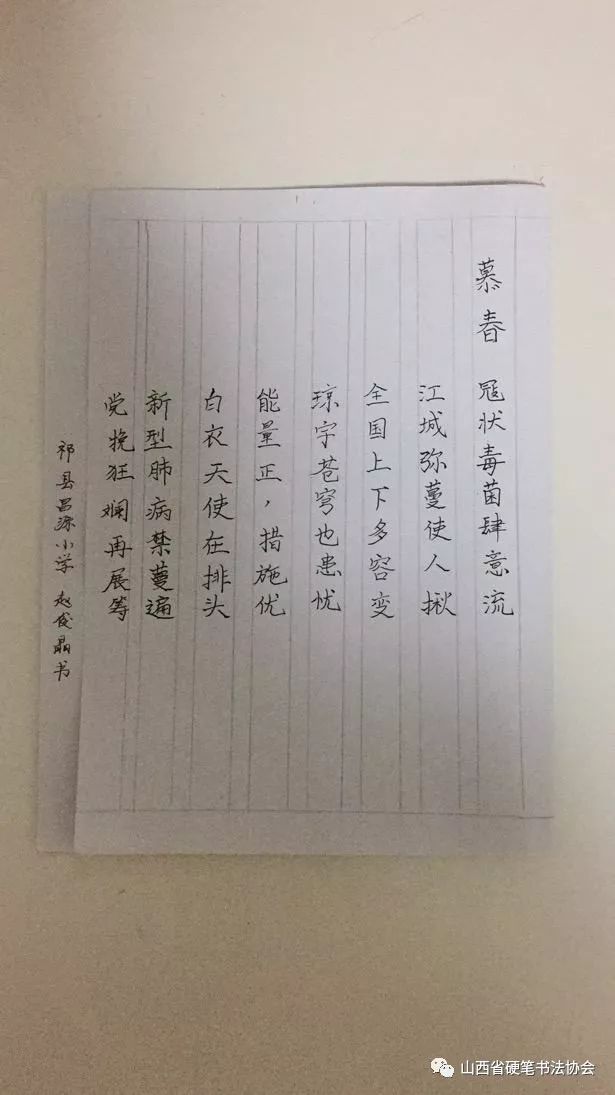 慕春 冠状毒菌肆意流
江城弥蔓使人揪
全国上下多容变
琼宇苍穹也患忧
能量正，措施优
白衣天使在排头
新型肺病禁蔓遍
党挽狂斓再展筹
祁县昌源小学 赵俊晶书
山西省硬笔书法协会